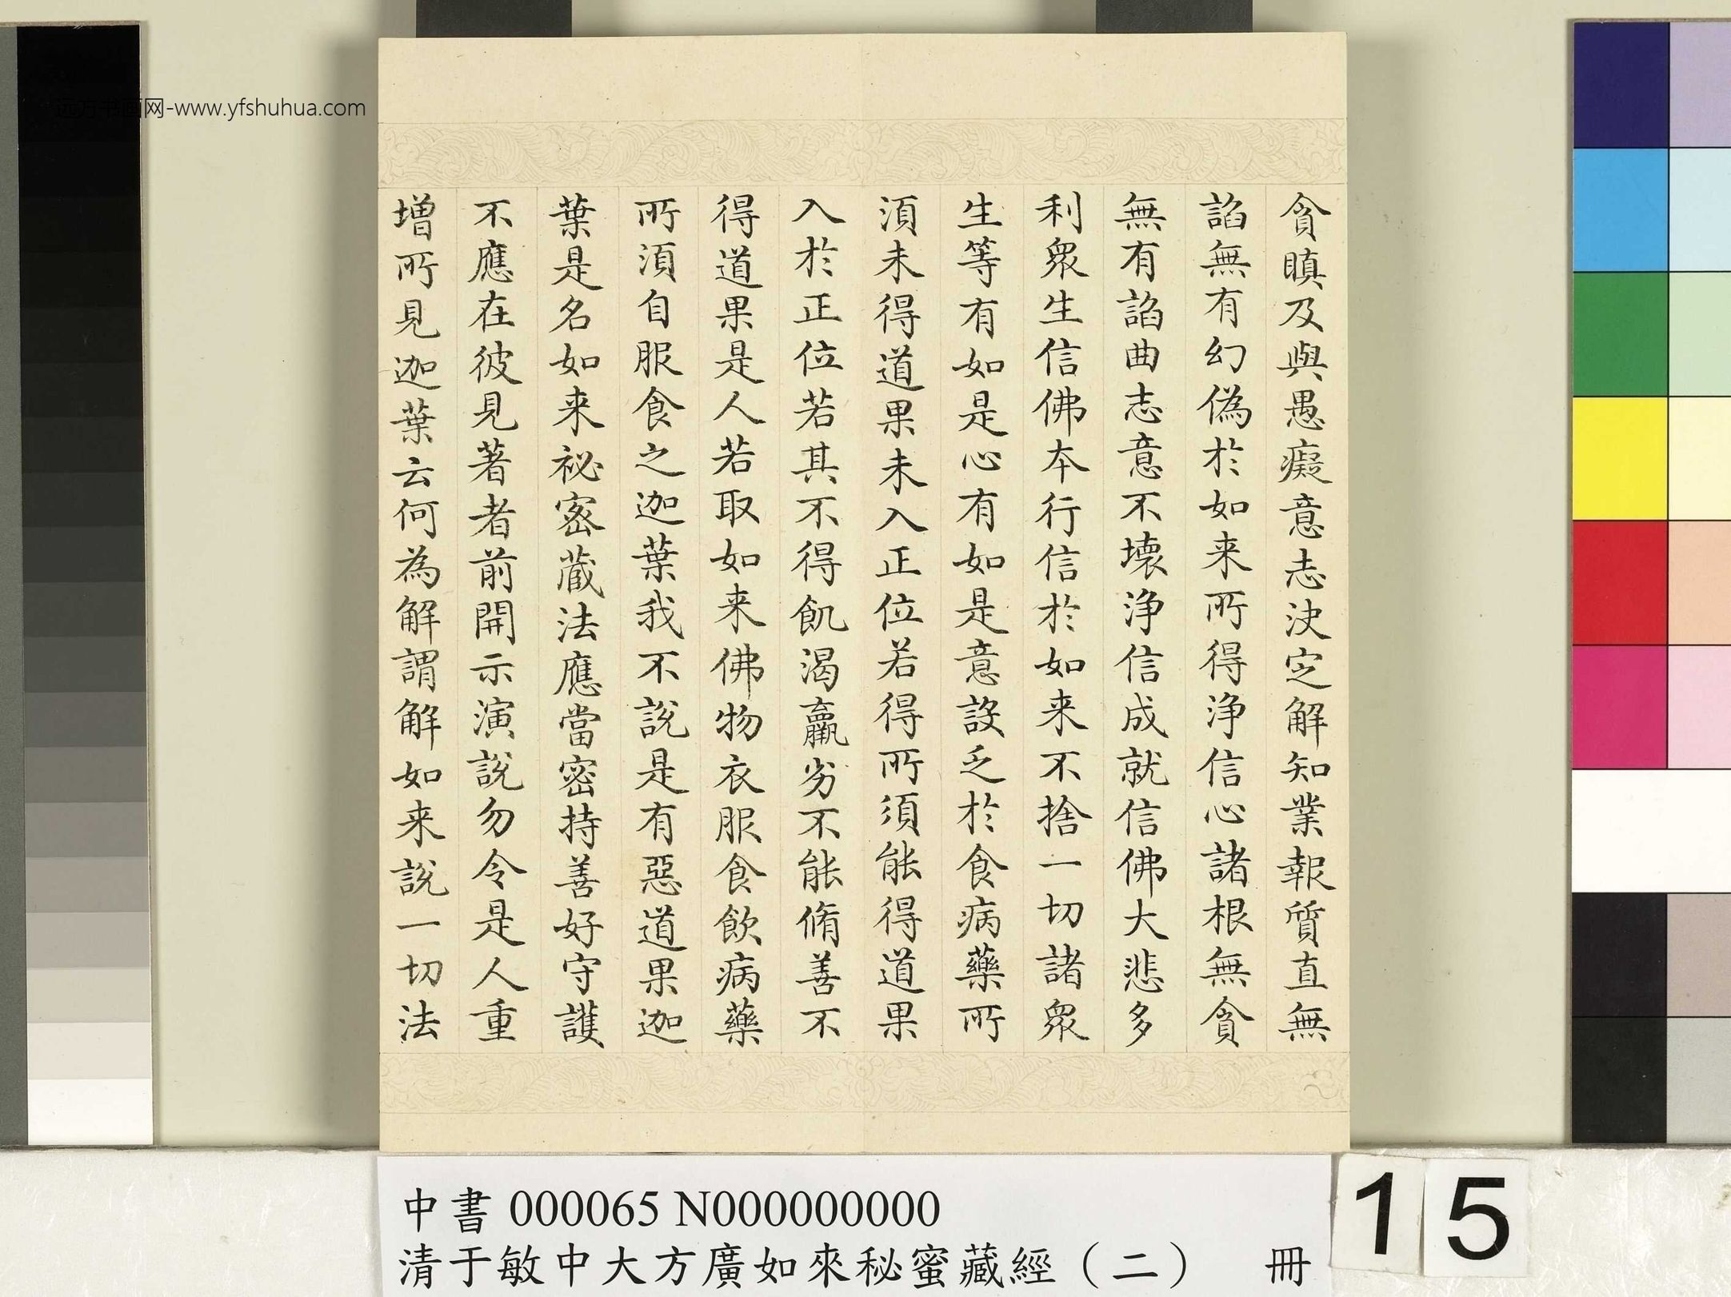 貪瞋及與愚癡意志決定解知業報質直無
諂無有幻偽於如来所得淨信心諸根無貪
無有諂曲志意不壞淨信成就信佛大悲多
利眾生信佛本行信於如来不捨一切諸眾
生等有如是心有如是意設乏於食病藥所
須未得道果未入正位若得所須能得道果
入於正位若其不得飢渴羸劣不能脩善不
得道果是人若取如来佛物衣服食飲病藥
所須自服食之迦葉我不說是有惡道果迦
葉是名如来祕密蔵法應當密持善好守護
不應在彼見著者前開示演說勿令是人重
增所見迦葉云何為解謂解如来說一切法
远方书画网-www.yfshuhua.com
中書 000065 N000000000
清于敏中大方廣如來秘蜜藏經（二） 冊
15